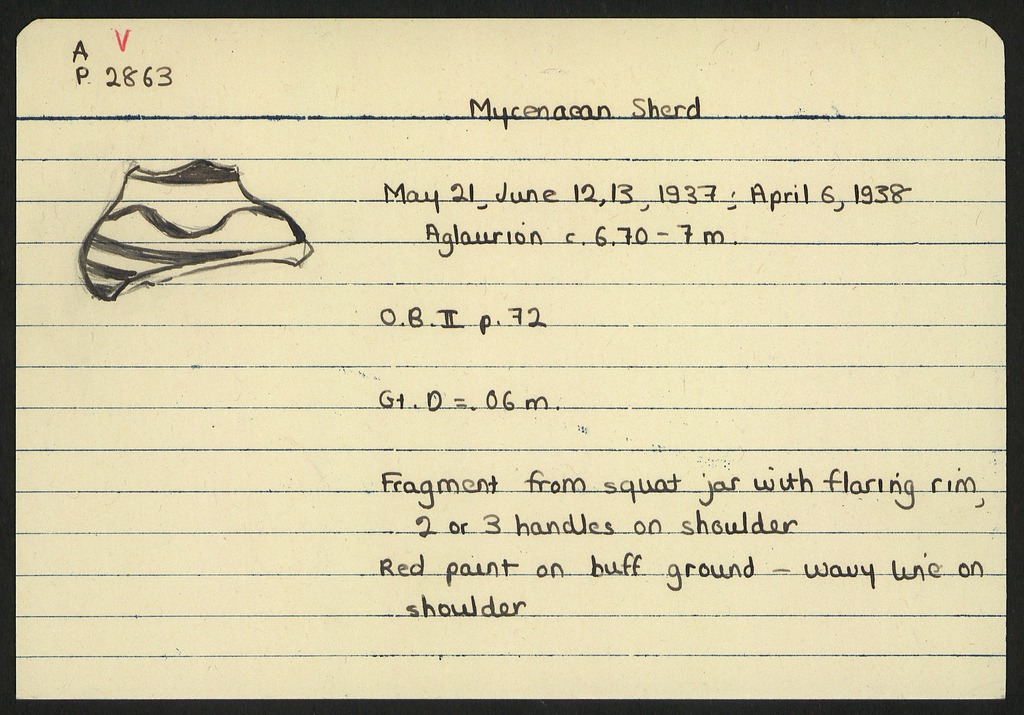 A V
P. 2863
Mycenaean Sherd
May 21, June 12,13, 1937; April 6, 1938
Aglaurion c. 6.70 - 7 m.
O.B. II p. 72
Gt. D = .06 m.
Fragment from squat jar with flaring rim,
2 or 3 handles on shoulder
Red paint on buff ground - wavy line on
shoulder